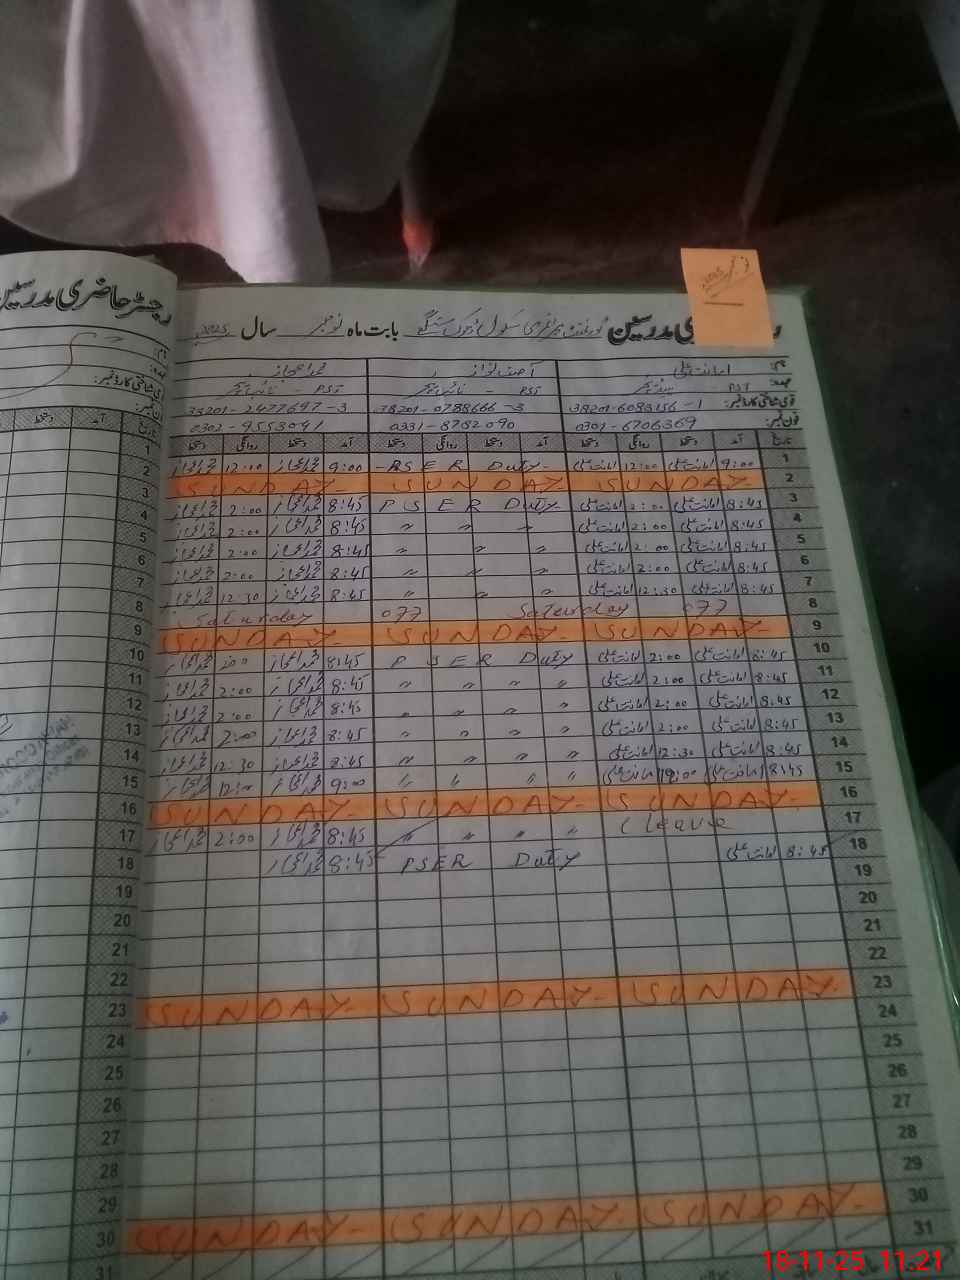 رجسٹر حاضری مدرسین
ری مدرسین گورنمنٹ پرائمری سکول ڈھوک بابت ماہ نومبر سال 2025
نام: امانت علی آصف نواز محمد اعجاز
عہدہ: PST - PST - PST
قومی شناختی کارڈ نمبر: 38201-6083156-1 38201-0788666-3 38201-2477697-3
فون نمبر: 0301-6706369 0331-8782090 0302-9553041
تاریخ آمد دستخط روانگی دستخط آمد دستخط روانگی دستخط آمد دستخط روانگی دستخط
1 9:00 امانت علی 12:00 امانت علی - PSER Duty - 9:00 محمد اعجاز 12:10 محمد اعجاز
2 SUNDAY- SUNDAY- SUNDAY-
3 8:45 امانت علی 2:00 امانت علی PSER Duty- 8:45 محمد اعجاز 2:00 محمد اعجاز
4 8:45 امانت علی 2:00 امانت علی " " " 8:45 محمد اعجاز 2:00 محمد اعجاز
5 8:45 امانت علی 2:00 امانت علی " " " 8:45 محمد اعجاز 2:00 محمد اعجاز
6 8:45 امانت علی 2:00 امانت علی " " " 8:45 محمد اعجاز 2:00 محمد اعجاز
7 8:45 امانت علی 12:30 امانت علی " " " 8:45 محمد اعجاز 12:30 محمد اعجاز
8 Saturday off Saturday off
9 SUNDAY- SUNDAY- SUNDAY-
10 8:45 امانت علی 2:00 امانت علی PSER Duty 8:45 محمد اعجاز 2:00 محمد اعجاز
11 8:45 امانت علی 2:00 امانت علی " " " " 8:45 محمد اعجاز 2:00 محمد اعجاز
12 8:45 امانت علی 2:00 امانت علی " " " " 8:45 محمد اعجاز 2:00 محمد اعجاز
13 8:45 امانت علی 2:00 امانت علی " " " " 8:45 محمد اعجاز 2:00 محمد اعجاز
14 8:45 امانت علی 12:30 امانت علی " " " " 8:45 محمد اعجاز 12:30 محمد اعجاز
15 8:45 امانت علی 12:00 امانت علی " " " " 9:00 محمد اعجاز 12:00 محمد اعجاز
16 SUNDAY- SUNDAY- SUNDAY-
17 Leave " " " 8:45 محمد اعجاز 2:00 محمد اعجاز
18 8:45 امانت علی PSER Duty 8:45 محمد اعجاز
19
20
21
22
23 SUNDAY- SUNDAY- SUNDAY-
24
25
26
27
28
29
30 SUNDAY- SUNDAY- SUNDAY-
31
18-11-25 11:21